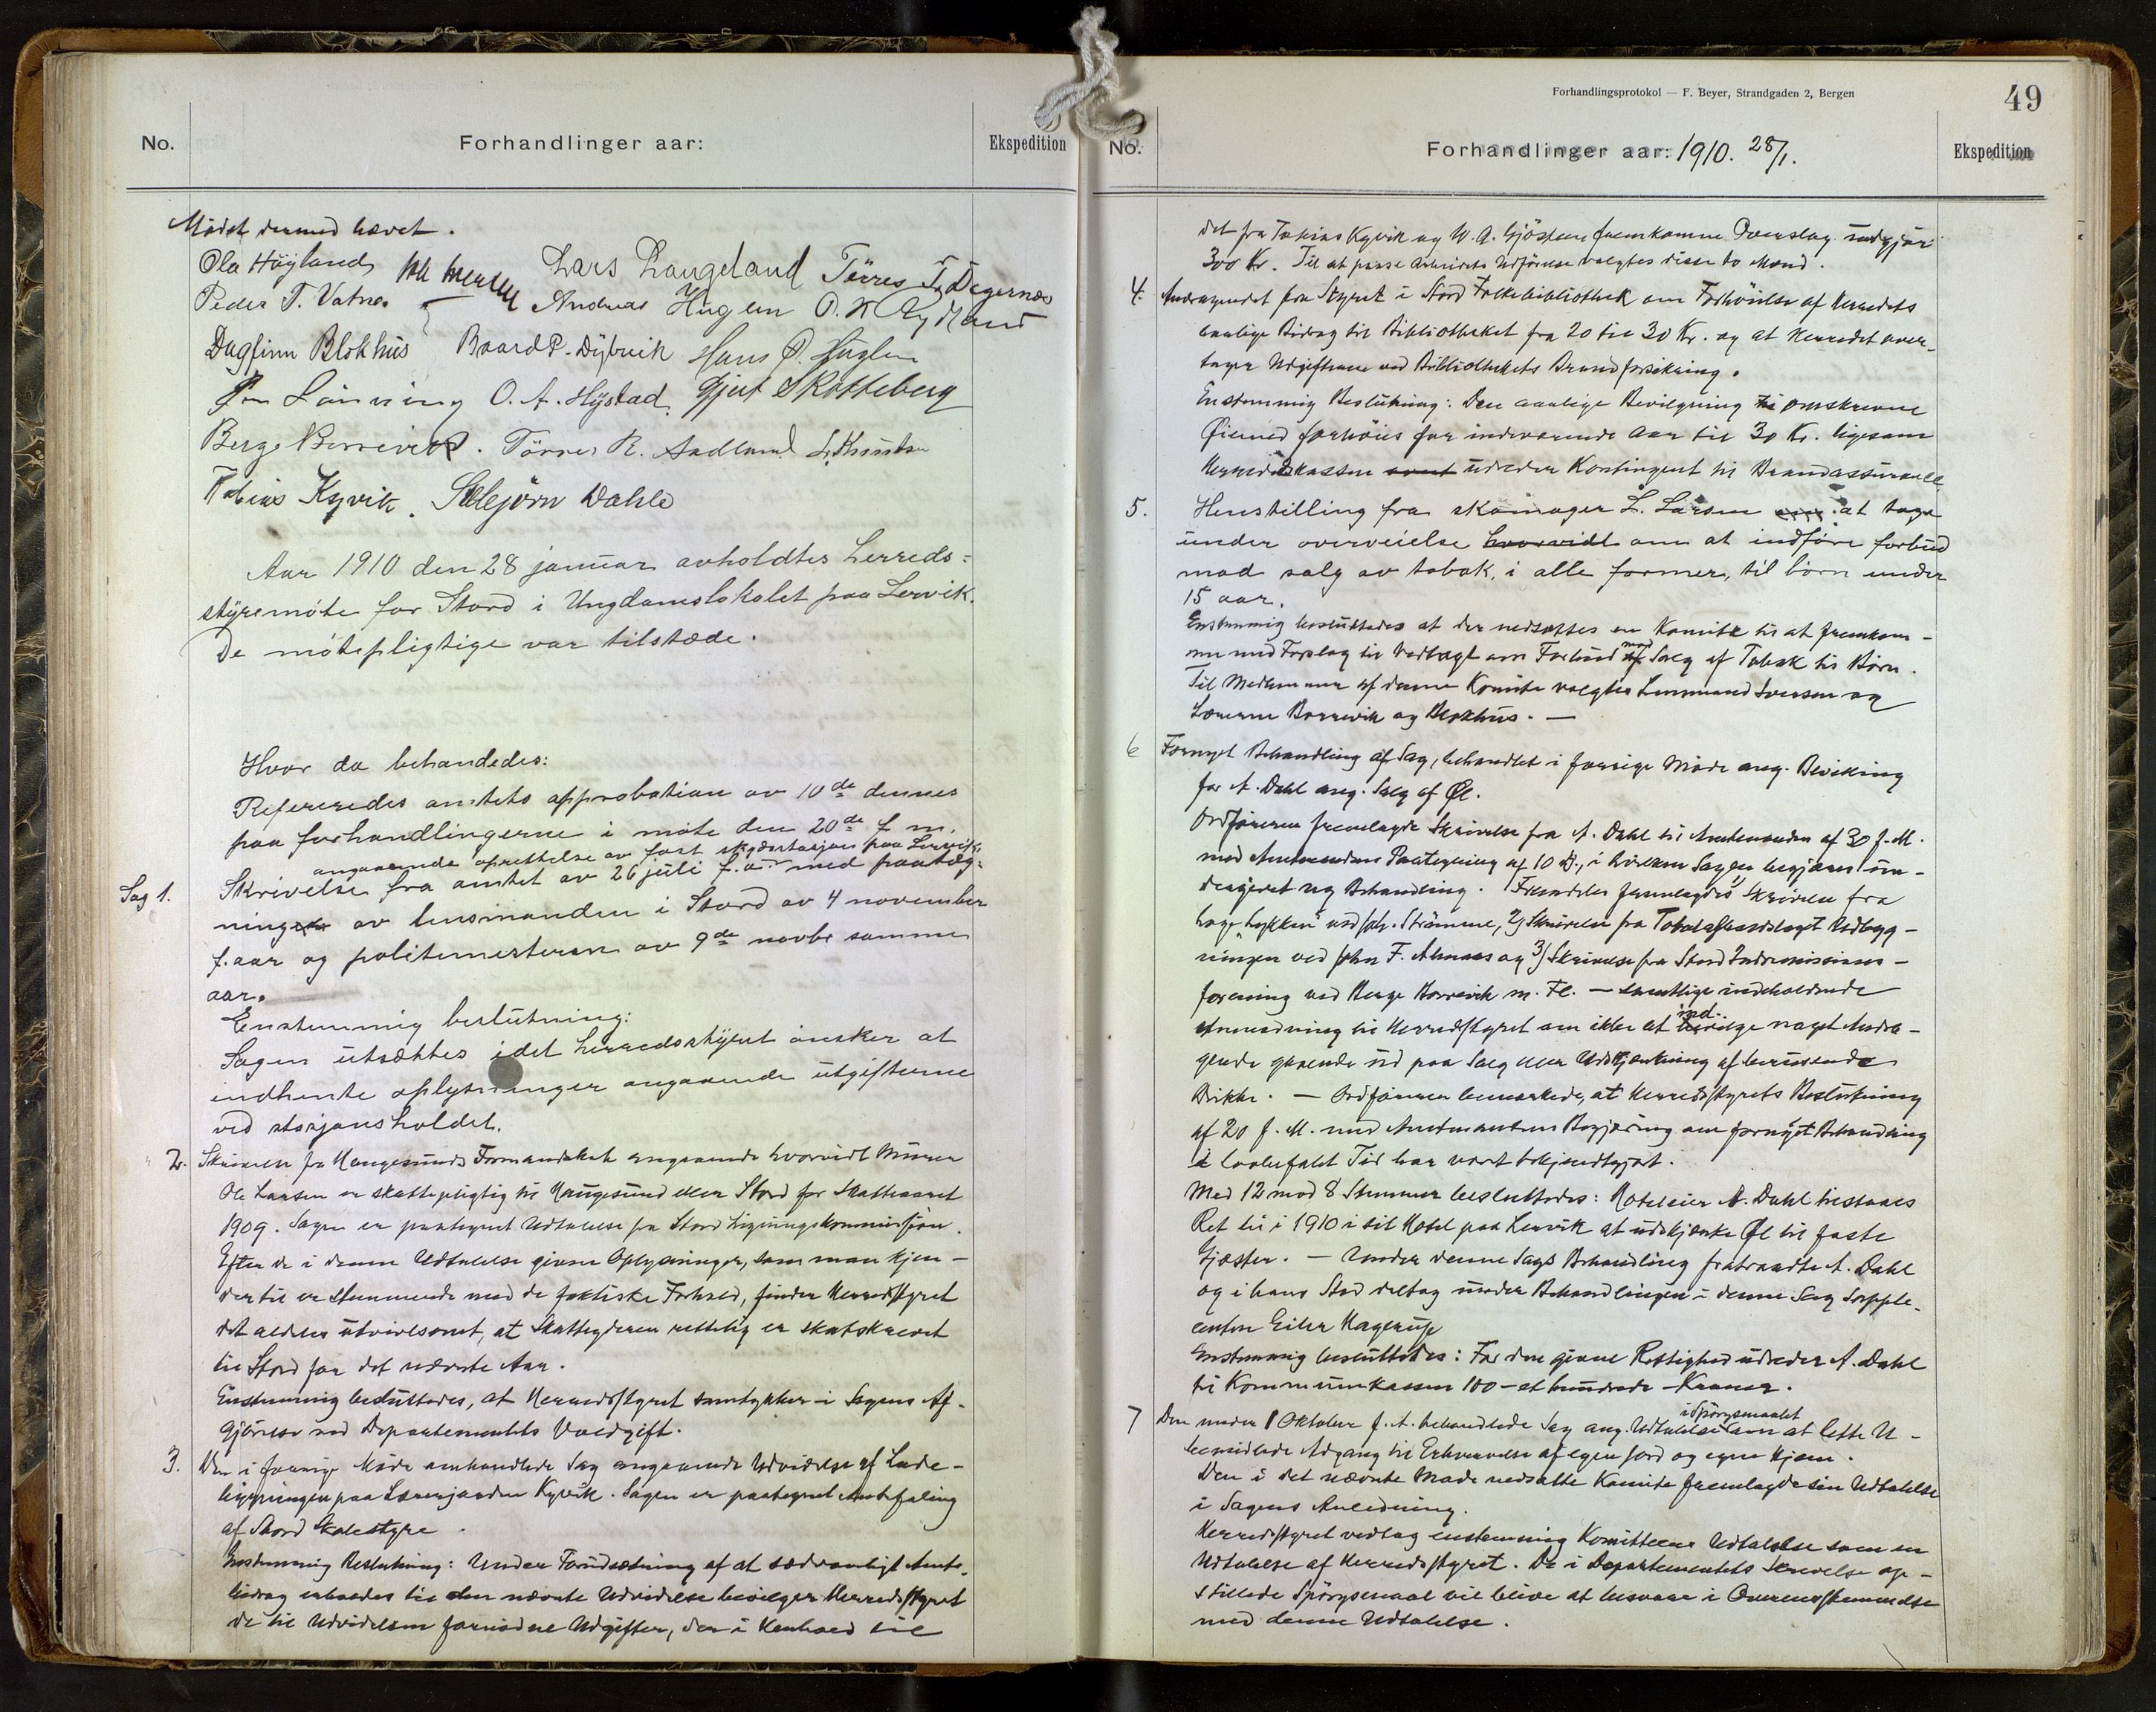 No.
Forhandlinger aar:
Ekspedition
Mødet dermed hævet.
Ola Høyland
Lars Langeland Tørres T. Digernæs
Peder T. Vatna
Andreas Huglen O. N. Rydland
Dagfinn Blokhus Baard P. Dybvik Hans O. Huglen
Lønning O. A. Hystad. Gjert Skotteberg
Berge Borrevik. Tørres R. Aadland L. Knutsen
Tobias Kyvik. Silejørn Dahle
Aar 1910 den 28 januar avholdtes herreds=
styremøte for Stord i Ungdomslokalet paa Lervik.
De møtepligtige var tilstæde.
Hvor da behandledes:
Refereredes amtets approbation av 10de dennes
paa forhandlingerne i møte den 20de f. m.
angaaende oprettelse av fast skydsstasjon paa Lervik.
Sag 1.
Skrivelse fra amtet av 26 juli f.a. med paateg-
ning av lensmanden i Stord av 4 november
f. aar og politimesteren av 9de novbr samme
aar.
Enstemmig beslutning:
Sagen utsættes idet herredsstyret ønsker at
indhente oplysninger angaaende utgifterne
ved stasjonsholdet.
2. Skrivelse fra Haugesunds Formandskab angaaende hvorvidt Murer
Ole Larsen er skattepligtig til Haugesund eller Stord for Skatteaaret
1909. Sagen er paategnet Udtalelse fra Stord Ligningskommission.
Efter de i denne Udtalelse givne Oplysninger, som man kjen-
der til er stemmende med de faktiske Forhold, finder Herredsstyret
det aldeles utvivlsomt, at Skatteyderen rettelig er skatskrevet
til Stord for det nævnte Aar.
Enstemmig besluttedes, at Herredsstyret samtykker i Sagens Af-
gjørelse ved Departementets Voldgift.
3. Den i forrige Møde omhandlede Sag angaaende Udvidelse af Lade-
bygningen paa Lærerjorden Kyvik. Sagen er paategnet Anbefaling
af Stord Skolestyre.
Enstemmig Beslutning: Under Forudsætning af at sædvanligt Amts-
bidrag erholdes til den nævnte Udvidelse bevilger Herredsstyret
de til Udvidelsen fornødne Udgifter, der i Henhold til
Forhandlingsprotokol — F. Beyer, Strandgaden 2, Bergen
49
No.
Forhandlinger aar: 1910. 28/1.
Ekspedition
det fra Tobias Kyvik og W. A. Gjøsteen fremkomne Overslag udgjør
300 Kr. Til at passe Arbeidets Udførelse valgtes disse to Mænd.
4. Andragendet fra Styret i Stord Folkebibliothek om Forhøielse af Herredets
aarlige Bidrag til Bibliotheket fra 20 til 30 Kr. og at Herredet over-
tager Udgifterne ved Bibliothekets Brandforsikring.
Enstemmig Beslutning: Den aarlige Bevilgning til omskrevne
Øiemed forhøies for indeværende Aar til 30 Kr. ligesom
Herredskassen udreder Kontingent til Brandassurance.
5. Henstilling fra skomager L. Larsen at tage
under overveielse hvorvidt om at indføre forbud
mod salg av tobak, i alle former, til børn under
15 aar.
Enstemmig besluttedes at der nedsættes en Komite til at fremkom-
me med Forslag til Vedtægt om Forbud mod Salg af Tobak til Børn.
Til Medlemmer af denne Komite valgtes Lensmand Svensen og
Lærerne Borrevik og Blokhus. —
6 Fornyet Behandling af Sag, behandlet i forrige Møde ang. Bevilling
for A. Dahl ang. Salg af Øl.
Ordføreren fremlagde Skrivelse fra A. Dahl til Amtmanden af 30 f. M.
med Amtmandens Paategning af 10 ds., i hvilken Sagen begjæres un-
dergivet ny Behandling. Fremdeles fremlagdes 1) Skrivelse fra
Loge „Lykken“ ved Joh. Strømme, 2) Skrivelse fra Totalafholdslaget Udbyg-
ningen ved John F. Almaas og 3) Skrivelse fra Stord Indremissions-
forening ved Berge Borrevik m. Fl. — samtlige indeholdende
Anmodning til Herredsstyret om ikke at ind- vilge noget Andra-
gende gaaende ud paa Salg eller Udskjænkning af berusende
Drikke. — Ordføreren bemærkede, at Herredsstyrets Beslutning
af 20 f. M. med Amtmandens Begjæring om fornyet Behandling
i lovbefalt Tid har vært bekjendtgjort.
Med 12 mod 8 Stemmer besluttedes: Hoteleier A. Dahl tilstaaes
Ret til i 1910 i sit Hotel paa Lervik at udskjænke Øl til faste
Gjæster. — Under denne Sags Behandling fratraadte A. Dahl
og i hans Sted deltog under Behandlingen i denne Sag Supple-
anten Eiler Hagerup
Enstemmig besluttedes: For den givne Rettighed udreder A. Dahl
til Kommunekassen 100 – et hundrede – Kroner.
7 Den under 1 Oktober f. A. behandlede Sag ang. Udtalelse i Spørgsmaalet om at lette U-
bemidlede Adgang til Erhvervelse af egen Jord og egne Hjem.
Den i det nævnte Møde nedsatte Komite fremlagde sin Udtalelse
i Sagens Anledning.
Herredsstyret vedtog enstemmig Komiteens Udtalelse som en
Udtalelse af Herredsstyret. De i Departementets Skrivelse op-
stillede Spørgsmaal vil blive at besvare i Overensstemmelse
med denne Udtalelse.